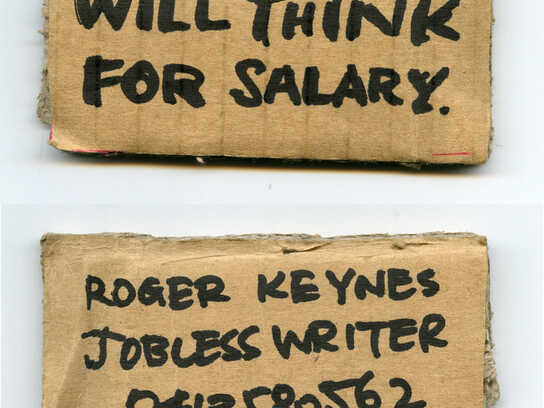 WILL THINK
FOR SALARY.
ROGER KEYNES
JOBLESS WRITER